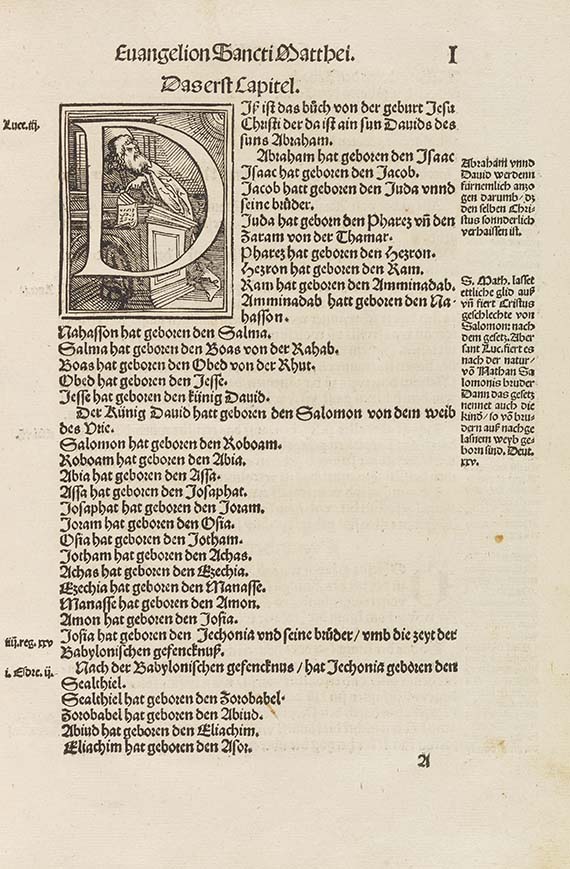 Euangelion Sancti Matthei.
I
Das erst Capitel.
DIß ist das bůch von der geburt Jesu
Christi der da ist ain sun Dauids des
suns Abraham.
Abraham hat geboren den Isaac
Isaac hat geboren den Jacob.
Jacob hatt geboren den Juda vnnd
seine brůder.
Juda hat geborn den Pharez vñ den
Zaram von der Thamar.
Pharez hat geboren den Hezron.
Hezron hat geboren den Ram.
Ram hat geboren den Amminadab.
Amminadab hatt geboren den Na-
hasson.
Nahasson hat geboren den Salma.
Salma hat geboren den Boas von der Rahab.
Boas hat geboren den Obed von der Rhut.
Obed hat geboren den Jesse.
Jesse hat geboren den künig Dauid.
Der Künig Dauid hatt geboren den Salomon von dem weib
des Vrie.
Salomon hat geboren den Roboam.
Roboam hat geboren den Abia.
Abia hat geboren den Assa.
Assa hat geboren den Josaphat.
Josaphat hat geboren den Joram.
Joram hat geboren den Osia.
Osia hat geboren den Jotham.
Jotham hat geboren den Achas.
Achas hat geboren den Ezechia.
Ezechia hat geboren den Manasse.
Manasse hat geboren den Amon.
Amon hat geboren den Josia.
Josia hat geboren den Jechonia vnd seine brůder / vmb die zeyt der
Babylonischen gefencknuß.
Nach der Babylonischen gefencknus / hat Jechonia geboren den
Sealthiel.
Sealthiel hat geboren den Zorobabel.
Zorobabel hat geboren den Abiud.
Abiud hat geboren den Eliachim.
Eliachim hat geboren den Asor.
A
Luce.iij.
iiij.reg.xxv
i. Esdre. ij.
Abraham vnnd
Dauid werdenn
fürnemlich anzo
gen darumb / dz
den selben Chri-
stus sonnderlich
verhaissen ist.
S. Math. lasset
ettliche glid auß
vñ fiert Cristus
geschlechte von
Salomon nach
dem gesetz. Aber
sant Luc. fiert es
nach der natur /
võ Nathan Sa
lomonis bruder
Dann das gesetz
nennet auch die
kind / so võ brů-
dern auß nachge
lasnem weyb ge-
born sind. Deut.
xxv.